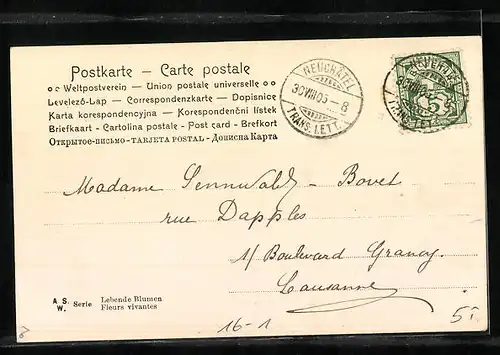 Postkarte – Carte postale
○○ Weltpostverein – Union postale universelle ○○
Levelező-Lap – Correspondenzkarte – Dopisnice
Karta korespondencyjna – Korespondenční lístek
Briefkaart - Cartolina postale - Post card - Brefkort
Открытое-письмо-TARJETA POSTAL-Дописна Карта
NEUCHATEL
30 VIII 05 – 8
TRANS. LETT.
NEUCHATEL
TRANS. LETT.
5
Madame Sennwald-Bovet
rue Dapples
1/ Boulevard Grancy.
Lausanne
A. S. W. Serie
Lebende Blumen
Fleurs vivantes
16-1